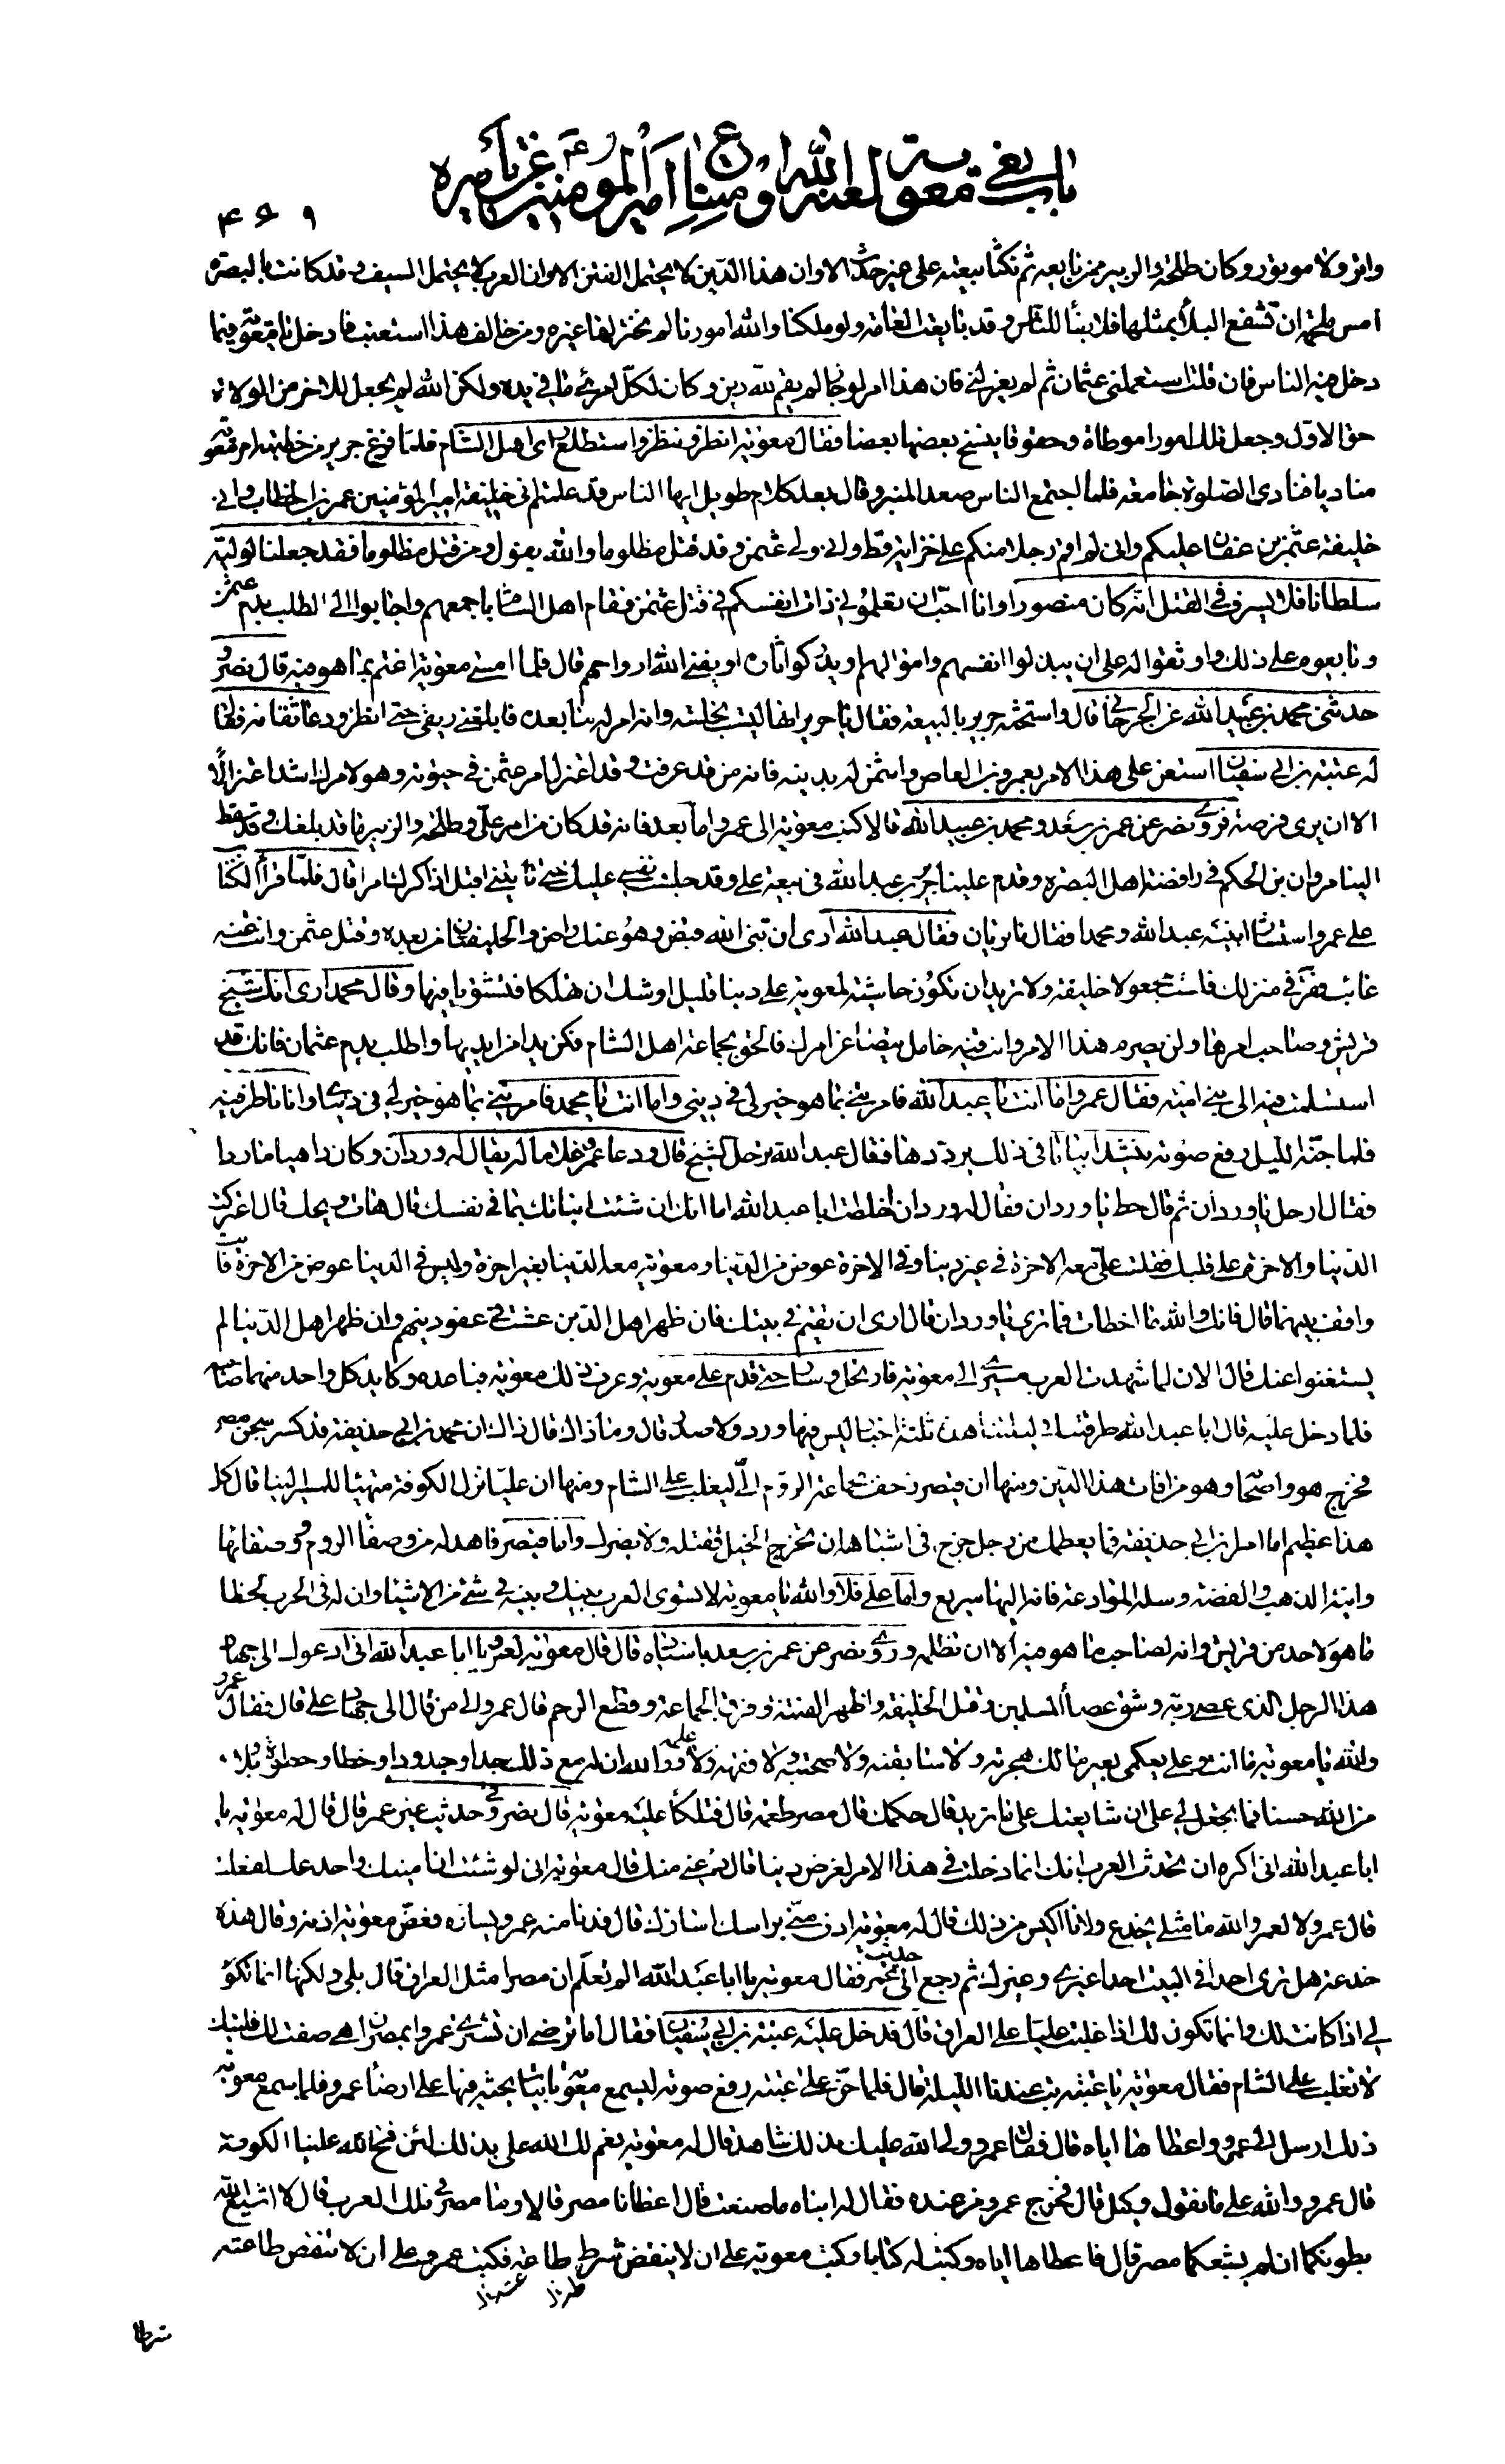 باب بغي معوية لعنه الله و مسير أمير المؤمنين ع
۴۶۹
واتر ولا موتور وكان طلحة والزبير ممن بايعه ثم نكثا بيعته على غير حدث الا وان هذا الدين لا يحتمل الفتن الا وان العرب لا يحتمل السيف وقد كانت بالبصرة
امس ملحمة ان تشفع البلاء بمثلها فلا بقاء للناس وقد بايعت العامة ولو ملكنا والله امورنا لم نختر لها غيره ومن خالف هذا استعتب فادخل يا معوية فيما
دخل فيه الناس فان قلت استعملني عثمان ثم لم يعزلني فان هذا امر لو جاز لم يقم لله دين وكان لكل امرئ ما في يده ولكن الله لم يجعل للاخر من الولاة
حق الاول وجعل تلك امورا موطاة وحقوقا ينسخ بعضها بعضا فقال معوية انظر وننظر واستطلع راى اهل الشام فلما فرغ جرير من خطبته امر معوية
مناديا فنادى الصلوة جامعة فلما اجتمع الناس صعد المنبر وقال بعد كلام طويل ايها الناس قد علمتم اني خليفة امير المؤمنين عمر بن الخطاب واني
خليفة عثمن بن عفان عليكم واني لم اقم رجلا منكم على خزاية قط واني ولي عثمن وقد قتل مظلوما والله يقول ومن قتل مظلوما فقد جعلنا لوليه
سلطانا فلا يسرف في القتل انه كان منصورا وانا احب ان تعلموني ذات انفسكم في قتل عثمن فقام اهل الشام باجمعهم واجابوا الى الطلب بدم عثمن
وبايعوه على ذلك واوثقوا له على ان يبذلوا انفسهم واموالهم او يدركوا ثاره او يفني الله ارواحهم قال فلما امسى معوية اغتم بما هو فيه قال نصر و
حدثني محمد بن عبيد الله عن الجرجاني قال واستحثه جرير بالبيعة فقال يا جرير انها ليست بخلسة وانه امر له ما بعده فابلعني ريقي حتى انظر ودعا ثقاته فقال
له عتبة بن ابي سفيان استعن على هذا الامر بعمرو بن العاص واثمن له بدينه فانه من قد عرفت وقد اعتزل امر عثمن في حيوته وهو لامرك اشد اعتزالا
الا ان يرى فرصة فروى نصر عن عمر بن سعد ومحمد بن عبيد الله قالا كتب معوية الى عمرو اما بعد فانه قد كان من امر علي وطلحة والزبير ما قد بلغك وقد سقط
الينا مروان بن الحكم في رافضة اهل البصرة وقدم علينا جرير بن عبد الله في بيعة علي وقد حبست نفسي عليك حتى تاتيني اقبل اذاكرك امرا قال فلما قرأ الكتاب
على عمرو استشار ابنيه عبد الله ومحمدا فقال ما تريان فقال عبد الله ارى ان نبي الله قبض وهو عنك راض والخليفتان من بعده وقتل عثمن وانت عنه
غائب فقر في منزلك فلست مجعولا خليفة ولا تريد ان تكون حاشية لمعوية على دنيا قليل اوشك ان تهلكا فتشقيا فيها وقال محمد ارى انك شيخ
قريش وصاحب امرها ولن يصرم هذا الامر وانت فيه خامل يتضاءل امرك فالحق بجماعة اهل الشام فكن يدا من ايديها واطلب بدم عثمان فانك قد
استسلمت فيه الى بني امية فقال عمرو اما انت يا عبد الله فامرتني بما هو خير لي في ديني واما انت يا محمد فامرتني بما هو خير لي في دنياي وانا ناظر فيه
فلما جنه الليل رفع صوته ينشد ابياتا في ذلك يرددها فقال عبد الله ترحل الشيخ قال ودعا عمرو غلاما له يقال له وردان وكان داهيا ماردا
فقال ارحل يا وردان ثم قال حط يا وردان فقال له وردان خلطت ابا عبد الله اما انك ان شئت انباتك بما في نفسك قال هات ويحك قال اعتركت
الدنيا والاخرة على قلبك فقلت علي معه الاخرة في غير دنيا وفي الاخرة عوض من الدنيا ومعوية معه الدنيا بغير اخرة وليس في الدنيا عوض من الاخرة فانت
واقف بينهما قال فانك والله ما اخطات فما ترى يا وردان قال ارى ان تقيم في بيتك فان ظهر اهل الدين عشت في عفو دينهم وان ظهر اهل الدنيا لم
يستغنوا عنك قال الان لما شهدت العرب مسيري الى معوية فارتحل وسار حتى قدم على معوية وعرف ذلك معوية فباعده وكايد كل واحد منهما صاحبه
فلما دخل عليه قال ابا عبد الله طرقتنا في ليلتنا هذه ثلثة اخبار ليس فيها ورد ولا صدر قال وما ذاك قال ذاك ان محمد بن ابي حذيفة قد كسر سجن مصر
فخرج هو واصحابه وهو من افات هذا الدين ومنها ان قيصر زحف بجماعة الروم الي ليغلب على الشام ومنها ان عليا نزل الكوفة متهيئا للمسير الينا قال كل
هذا عظيم اما امر ابن ابي حذيفة فما يعظمك من رجل خرج في اشباهه ان تخرج الخيل فتقتله ولا يضرك واما قيصر فاهد له من وصفاء الروم ووصفائها
وانية الذهب والفضة وسله الموادعة فانه اليها سريع واما علي فلا والله يا معوية لا تسوى العرب بينك وبينه في شئ من الاشياء وان له في الحرب لحظا
ما هو لاحد من قريش وانه لصاحب ما هو فيه الا ان تظلمه وروى نصر عن عمر بن سعد باسناده قال قال معوية لعمرو يا ابا عبد الله اني ادعوك الى جهاد
هذا الرجل الذي عصى ربه وشق عصا المسلمين وقتل الخليفة واظهر الفتنة وفرق الجماعة وقطع الرحم قال عمرو الى من قال الى جهاد علي قال فقال عمرو
والله يا معوية ما انت وعلي بعكمي بعير ما لك هجرته ولا سابقته ولا صحبته ولا فقهه ولا علمه ووالله ان له مع ذلك جدا وجدودا وخطا وحظوة وبلاء
من الله حسنا فما تجعل لي على ان شايعتك على ما تريد قال حكمك قال مصر طعمة قال فتلكأ عليه معوية قال نصر وفي حديث غير عمر قال قال له معوية يا
ابا عبد الله اني اكره ان تحدث العرب انك انما دخلت في هذا الامر لغرض دنيا قال دعني منك قال معوية اني لو شئت ان امنيك واخدعك لفعلت
قال عمرو لا لعمر والله ما مثلي يخدع ولانا اكيس من ذلك قال له معوية ادن مني براسك اسارك قال فدنا منه عمرو يساره فعض معوية اذنه وقال هذه
خدعة هل ترى احدا في البيت احدا غيري وغيرك ثم رجع الى حديث نصر فقال معوية يا ابا عبد الله الم تعلم ان مصرا مثل العراق قال بلى ولكنها انما تكون
لي اذا كانت لك وانما تكون لك اذا غلبت عليا على العراق قال فدخل عليه عتبة بن ابي سفيان فقال اما ترضى ان تشتري عمروا بمصر ان هي صفت لك فليتك
لا تغلب على الشام فقال معوية يا عتبة بت عندنا الليلة قال فلما جن على عتبة رفع صوته ليسمع معوية بابيات يحثه فيها على ارضاء عمرو فلما سمع معوية
ذلك ارسل الى عمرو واعطاها اياه قال فقال عمرو ولي الله عليك بذلك شاهد قال له معوية نعم لك الله علي بذلك لئن فتح الله علينا الكوفة
قال عمرو والله على ما نقول وكيل قال فخرج عمرو من عنده فقال له ابناه ما صنعت قال اعطانا مصر قالا وما مصر في ملك العرب قال لا اشبع الله
بطونكما ان لم يشبعكما مصر قال فاعطاها اياه وكتب له كتابا وكتب معوية على ان لا ينقض شرط طاعة فكتب عمرو على ان لا تنقض طاعته
شرطا